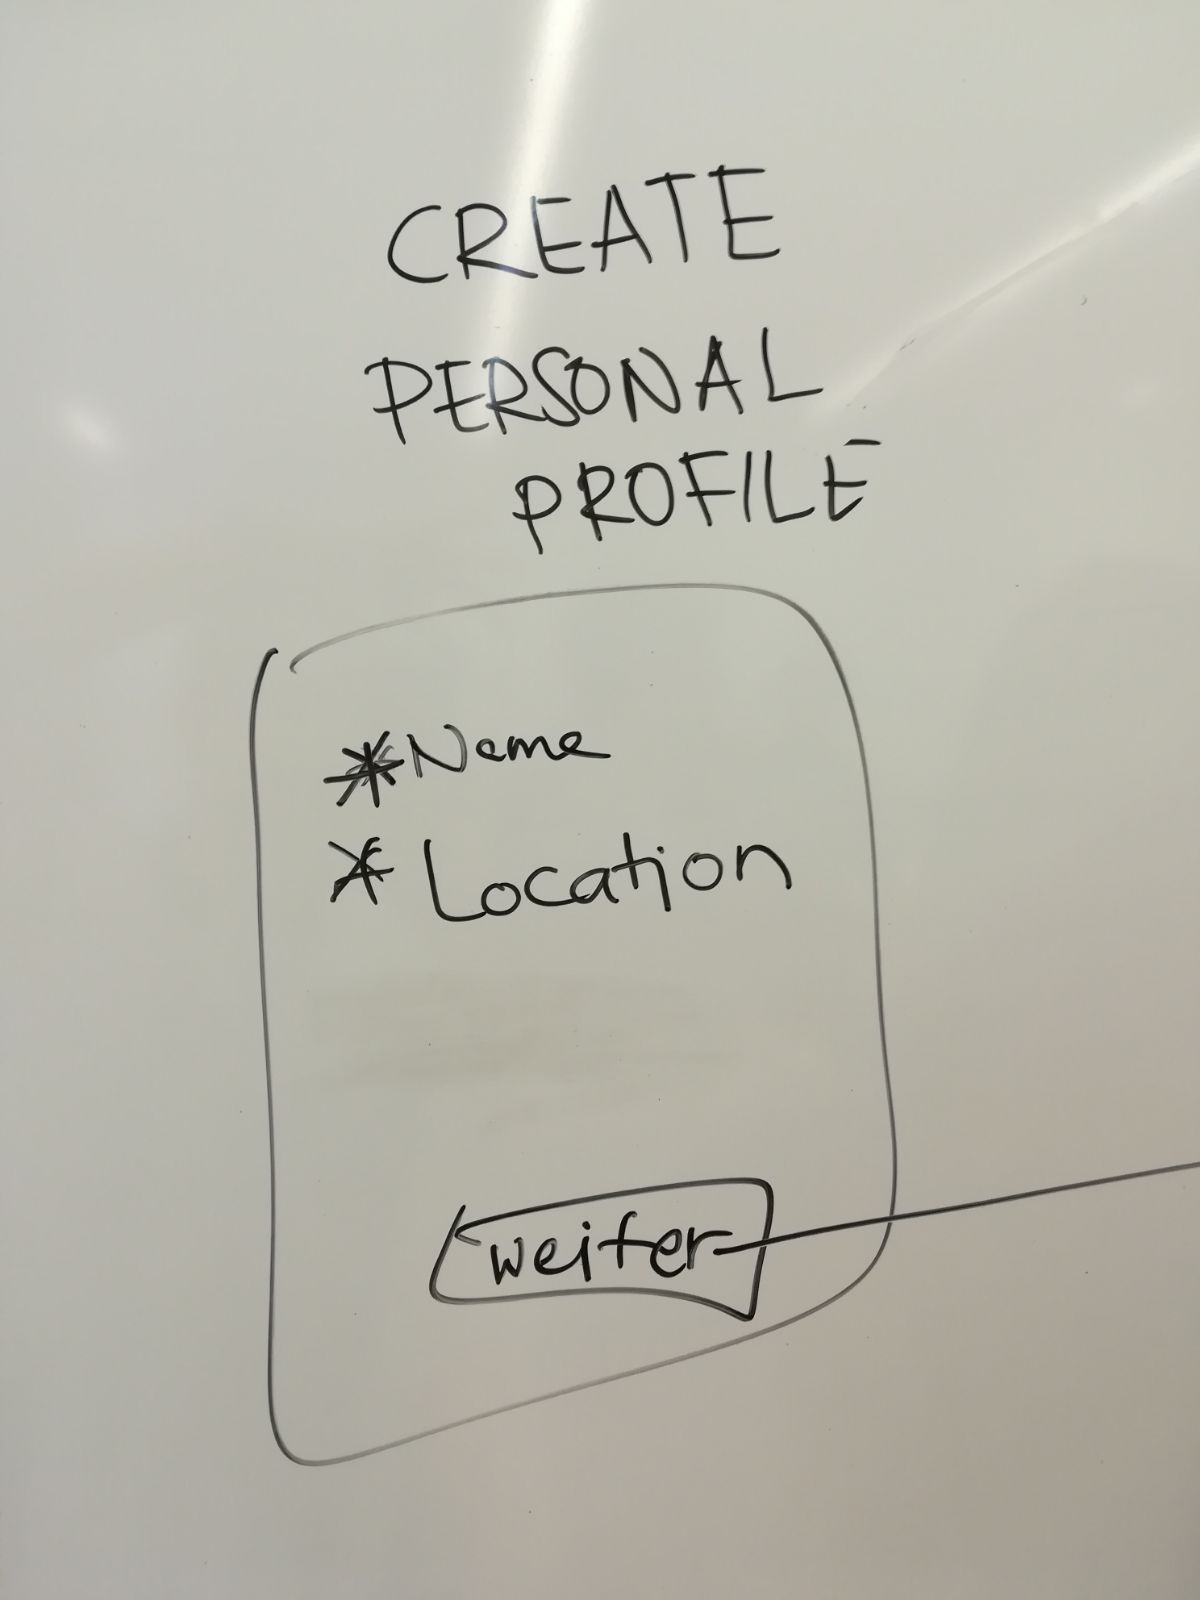 CREATE
PERSONAL
PROFILE
* Name
* Location
weiter